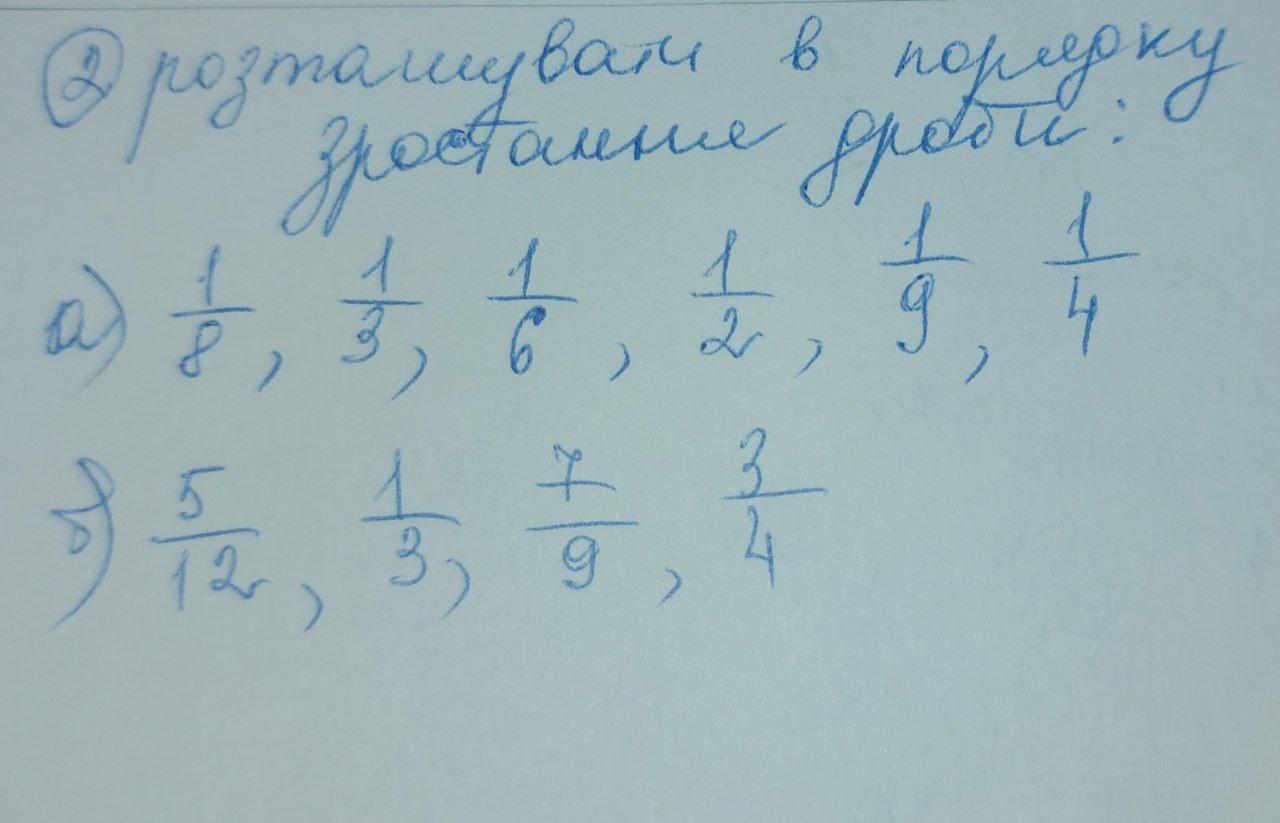 ② розташувати в порядку
зростання дроби:
а) 1/8, 1/3, 1/6, 1/2, 1/9, 1/4
б) 5/12, 1/3, 7/9, 3/4